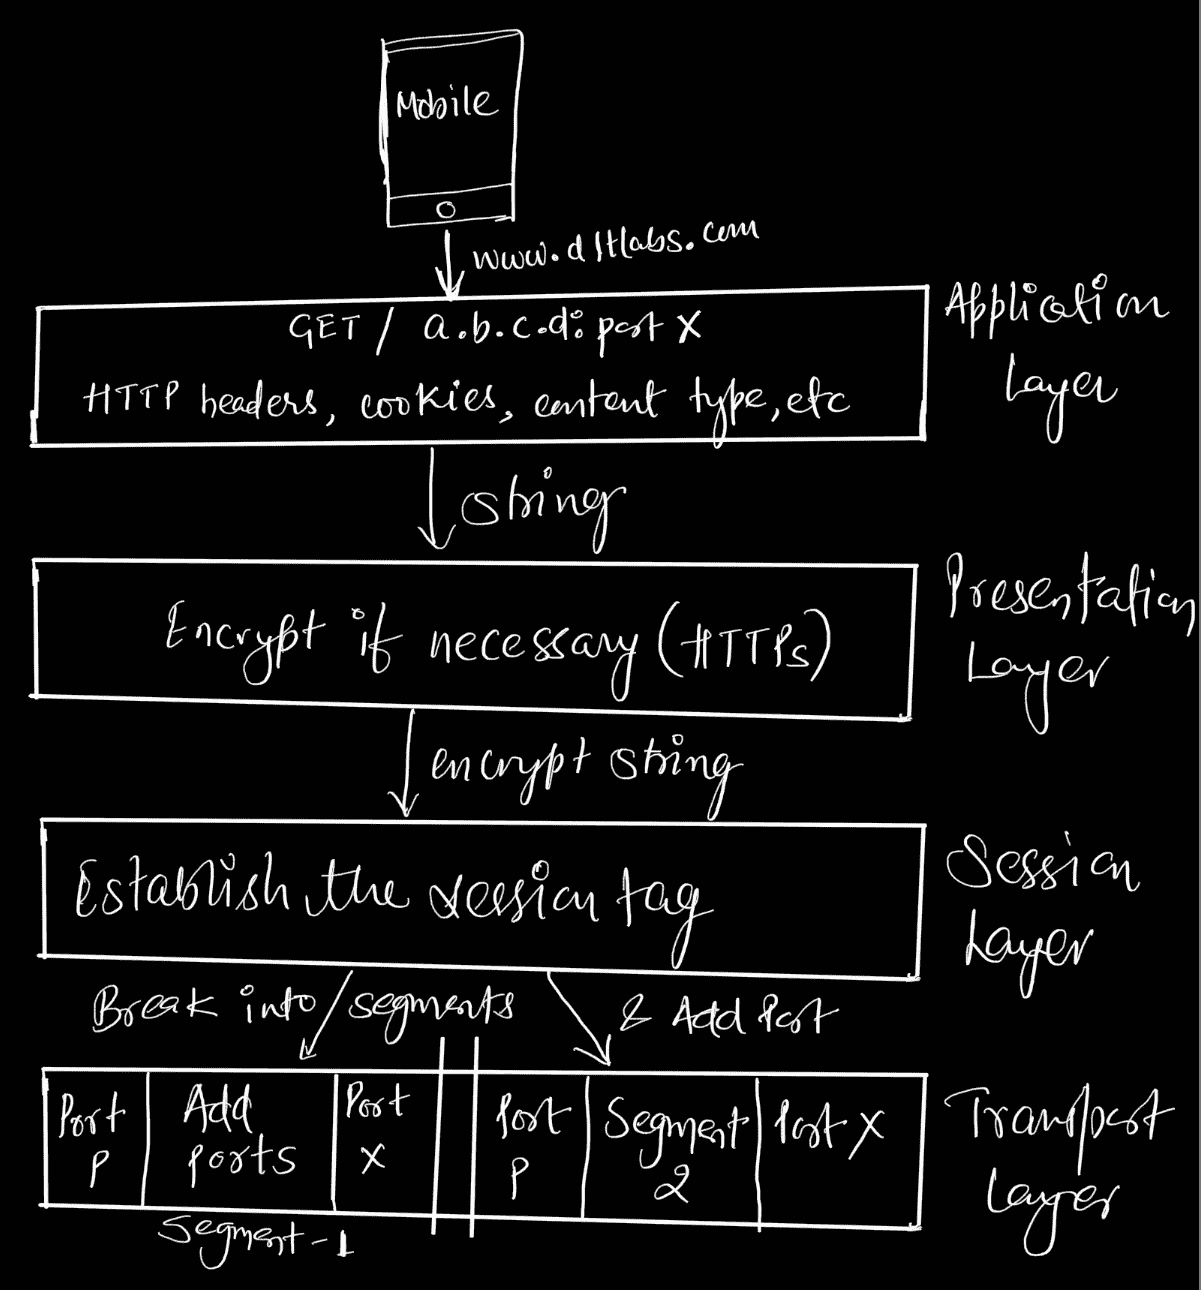 Mobile
www.dltlabs.com
GET / a.b.c.d: port X
HTTP headers, cookies, content type, etc
Application
Layer
string
Encrypt if necessary (HTTPs)
Presentation
Layer
encrypt string
Establish the session tag
Session
Layer
Break into segments
& Add Port
Port
P
Add
ports
Port
X
Port
P
Segment
2
Port X
Transport
Layer
Segment-1